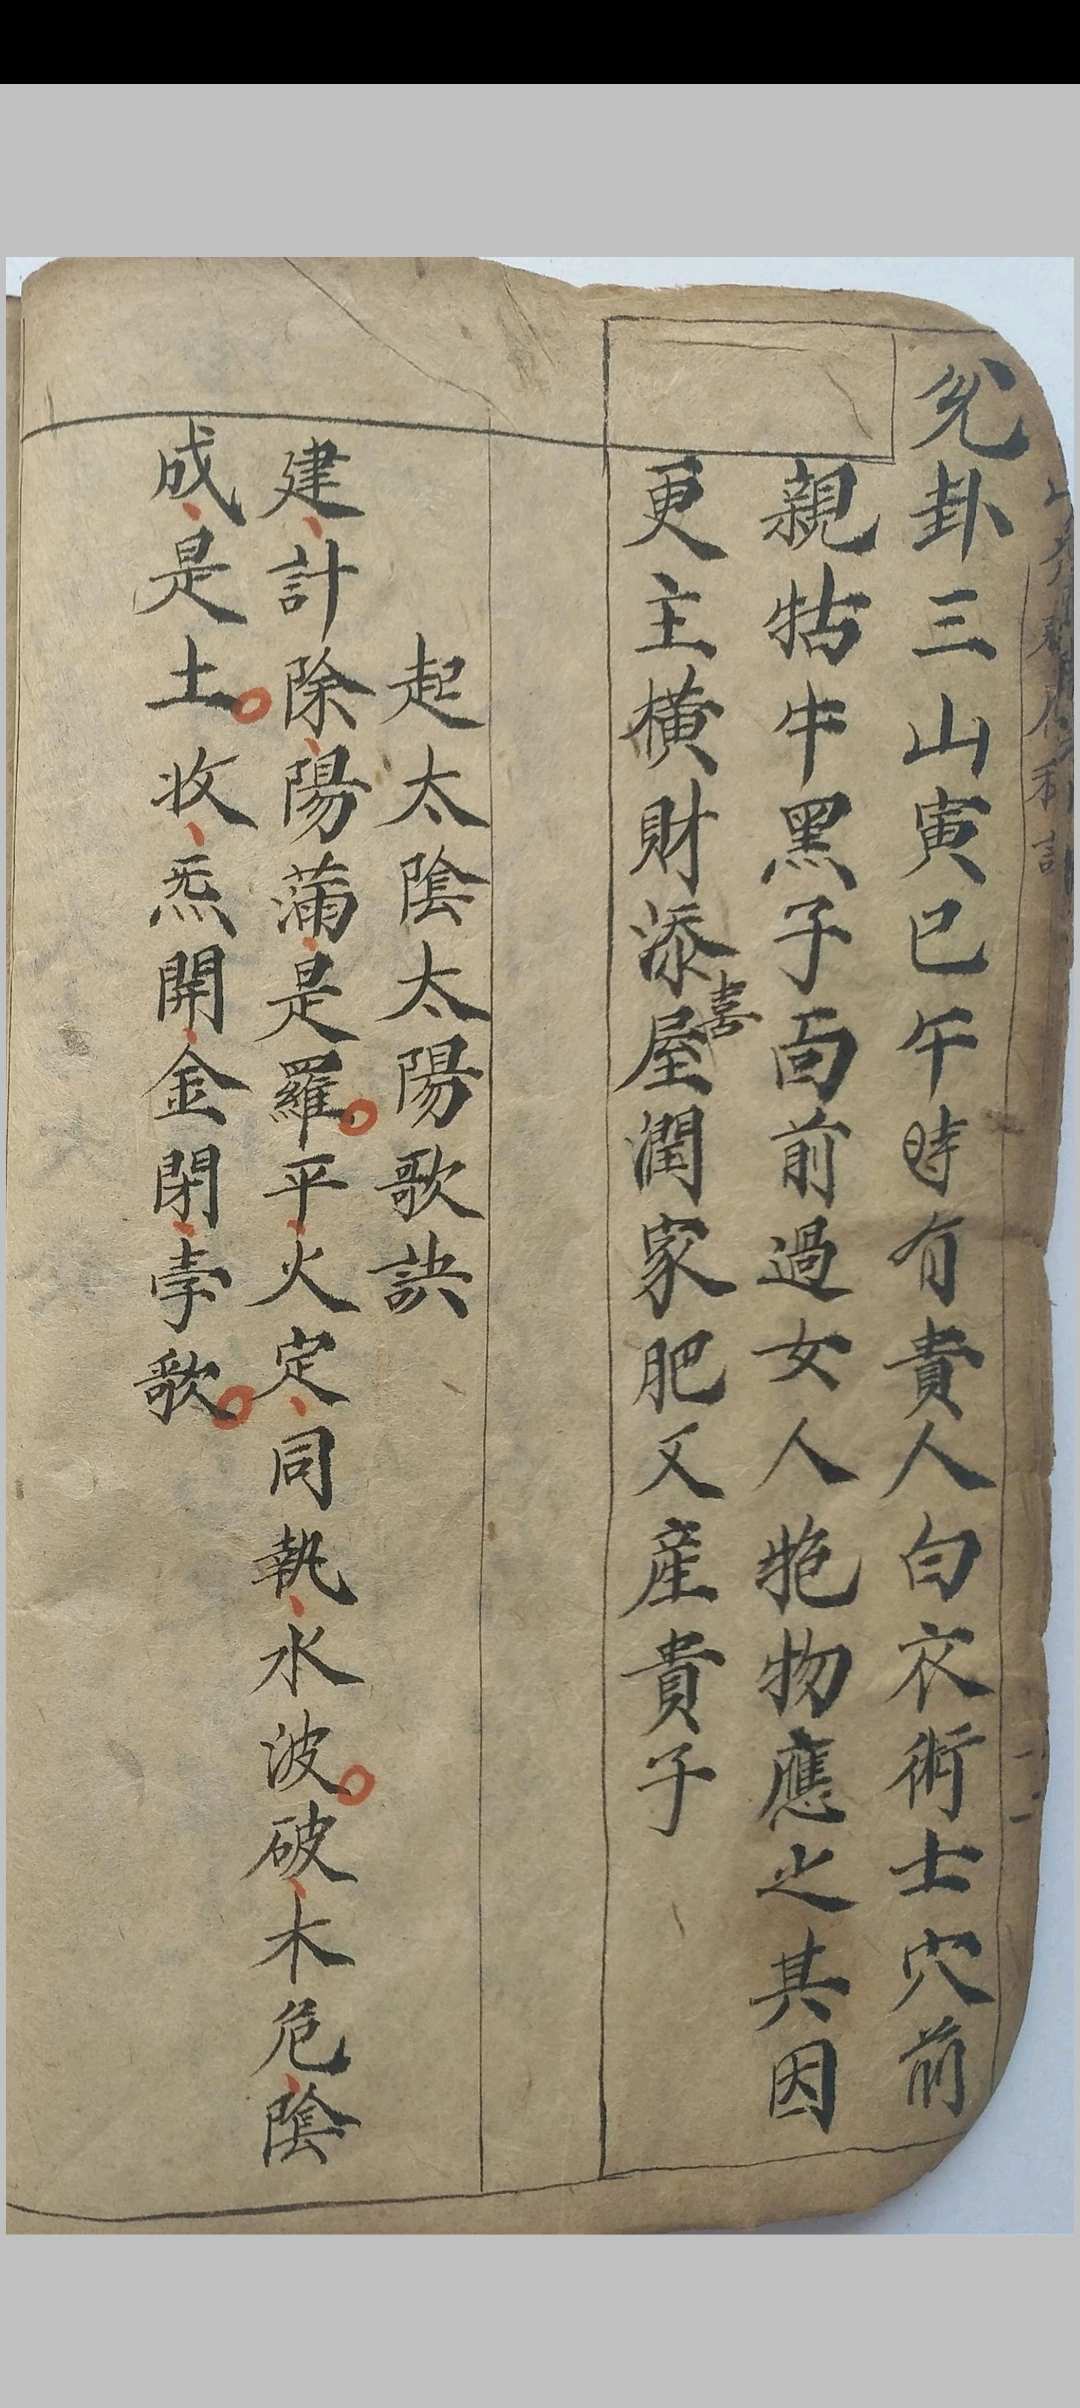 兌卦三山寅巳午時有貴人白衣術士穴前
親牯牛黑子面前過女人抱物應之其因
更主橫財添喜屋潤家肥又產貴子
起太陰太陽歌訣
建計除陽滿是羅平火定同執水波破木危陰
成是土收炁開金閉孛歌